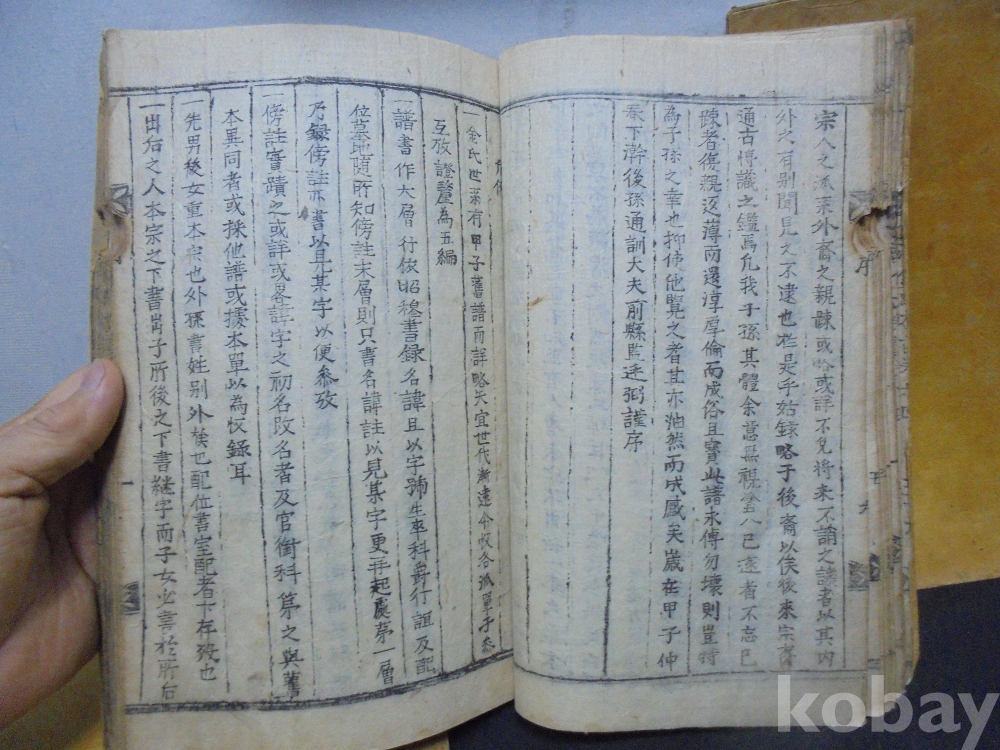 宗人之派系外裔之親踈或略或詳不免將來不誚之議者以其內
外之有別聞見之不逮也於是乎姑錄略于後裔以俟後來宗裔
通古博識之鑑焉凡我子孫其體余意無視塗人已遠者不忘已
踈者復親返薄而還淳厚倫而成俗且寶此譜永傳勿壞則豈特
為子孫之幸也抑使他覽之者其亦油然而成感矣歲在甲子仲
春下澣後孫通訓大夫前縣監廷弼謹序
凡例
一 余氏世系有甲子舊譜而詳略失宜世代漸遠今收各派單子參
互攷證釐為五編
一譜書作大層行依昭穆書錄名諱且以字號生卒科爵行誼及配
位墓地隨所知傍註末層則只書名諱註以見某字更弄起處第一層
乃錄傍註亦書以見某字以便參攷
一傍註實蹟之或詳或畧諱字之初名改名者及官銜科第之與舊
本異同者或採他譜或據本單以為攷錄耳
一先男後女重本宗也外孫書姓別外族也配位書室配者下存歿也
一出后之人本宗之下書出子所後之下書継字而子女必書於所后
kobay